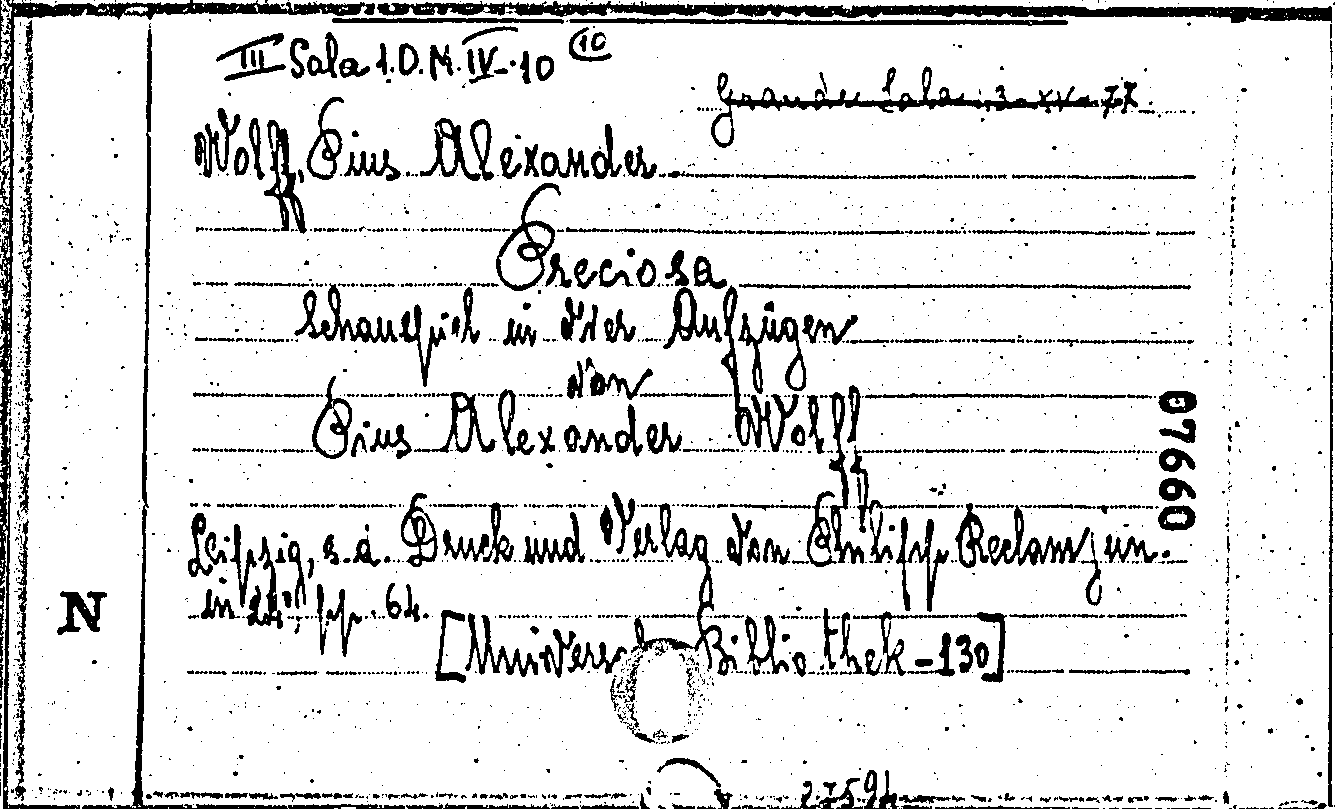 III Sala 1.D.M.IV-10 (10)
Grande Sala: 3-XV-77.
Wolff, Pius Alexander.
Preciosa
Schauspiel in vier Aufzügen
von
Pius Alexander Wolff
Leipzig, s.a. Druck und Verlag von Philipp Reclam jun.
in 24°, pp. 64.
[Univers Bibliothek-130]
07660
N